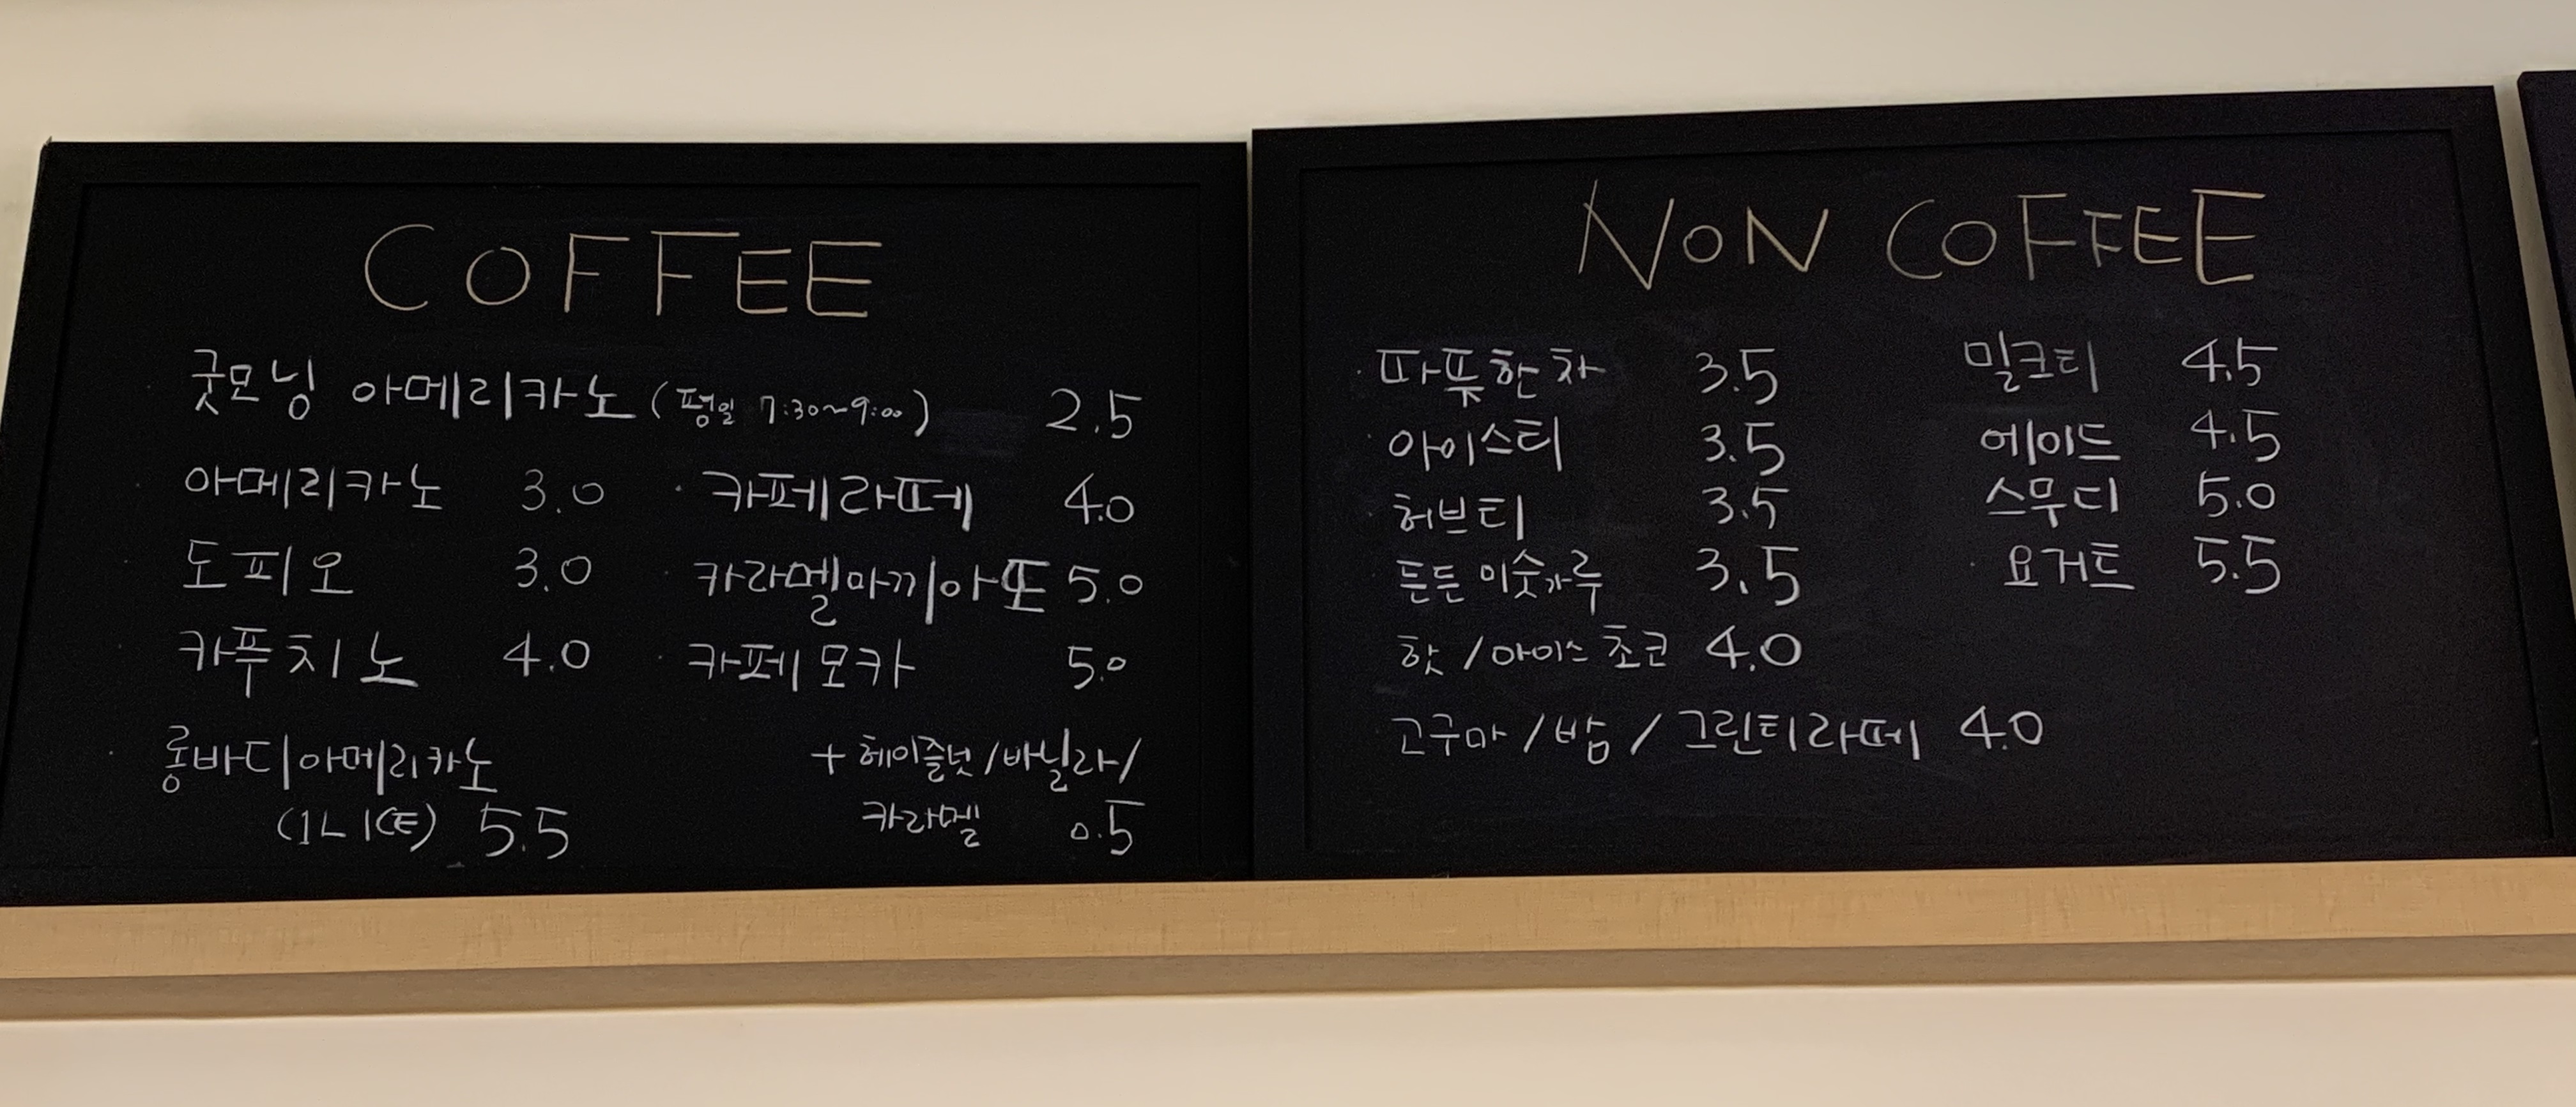 COFFEE
굿모닝 아메리카노 (평일 7:30~9:00) 2.5
아메리카노 3.0 · 카페라떼 4.0
도피오 3.0 · 카라멜마끼아또 5.0
· 카푸치노 4.0 · 카페모카 5.0
· 롱바디아메리카노
(1L ICE) 5.5
+ 헤이즐넛/바닐라/
카라멜 0.5
NON COFFEE
· 따뜻한 차 3.5
· 아이스티 3.5
· 허브티 3.5
든든 미숫가루 3.5
핫/아이스 초코 4.0
고구마/밤/그린티라떼 4.0
밀크티 4.5
에이드 4.5
스무디 5.0
· 요거트 5.5